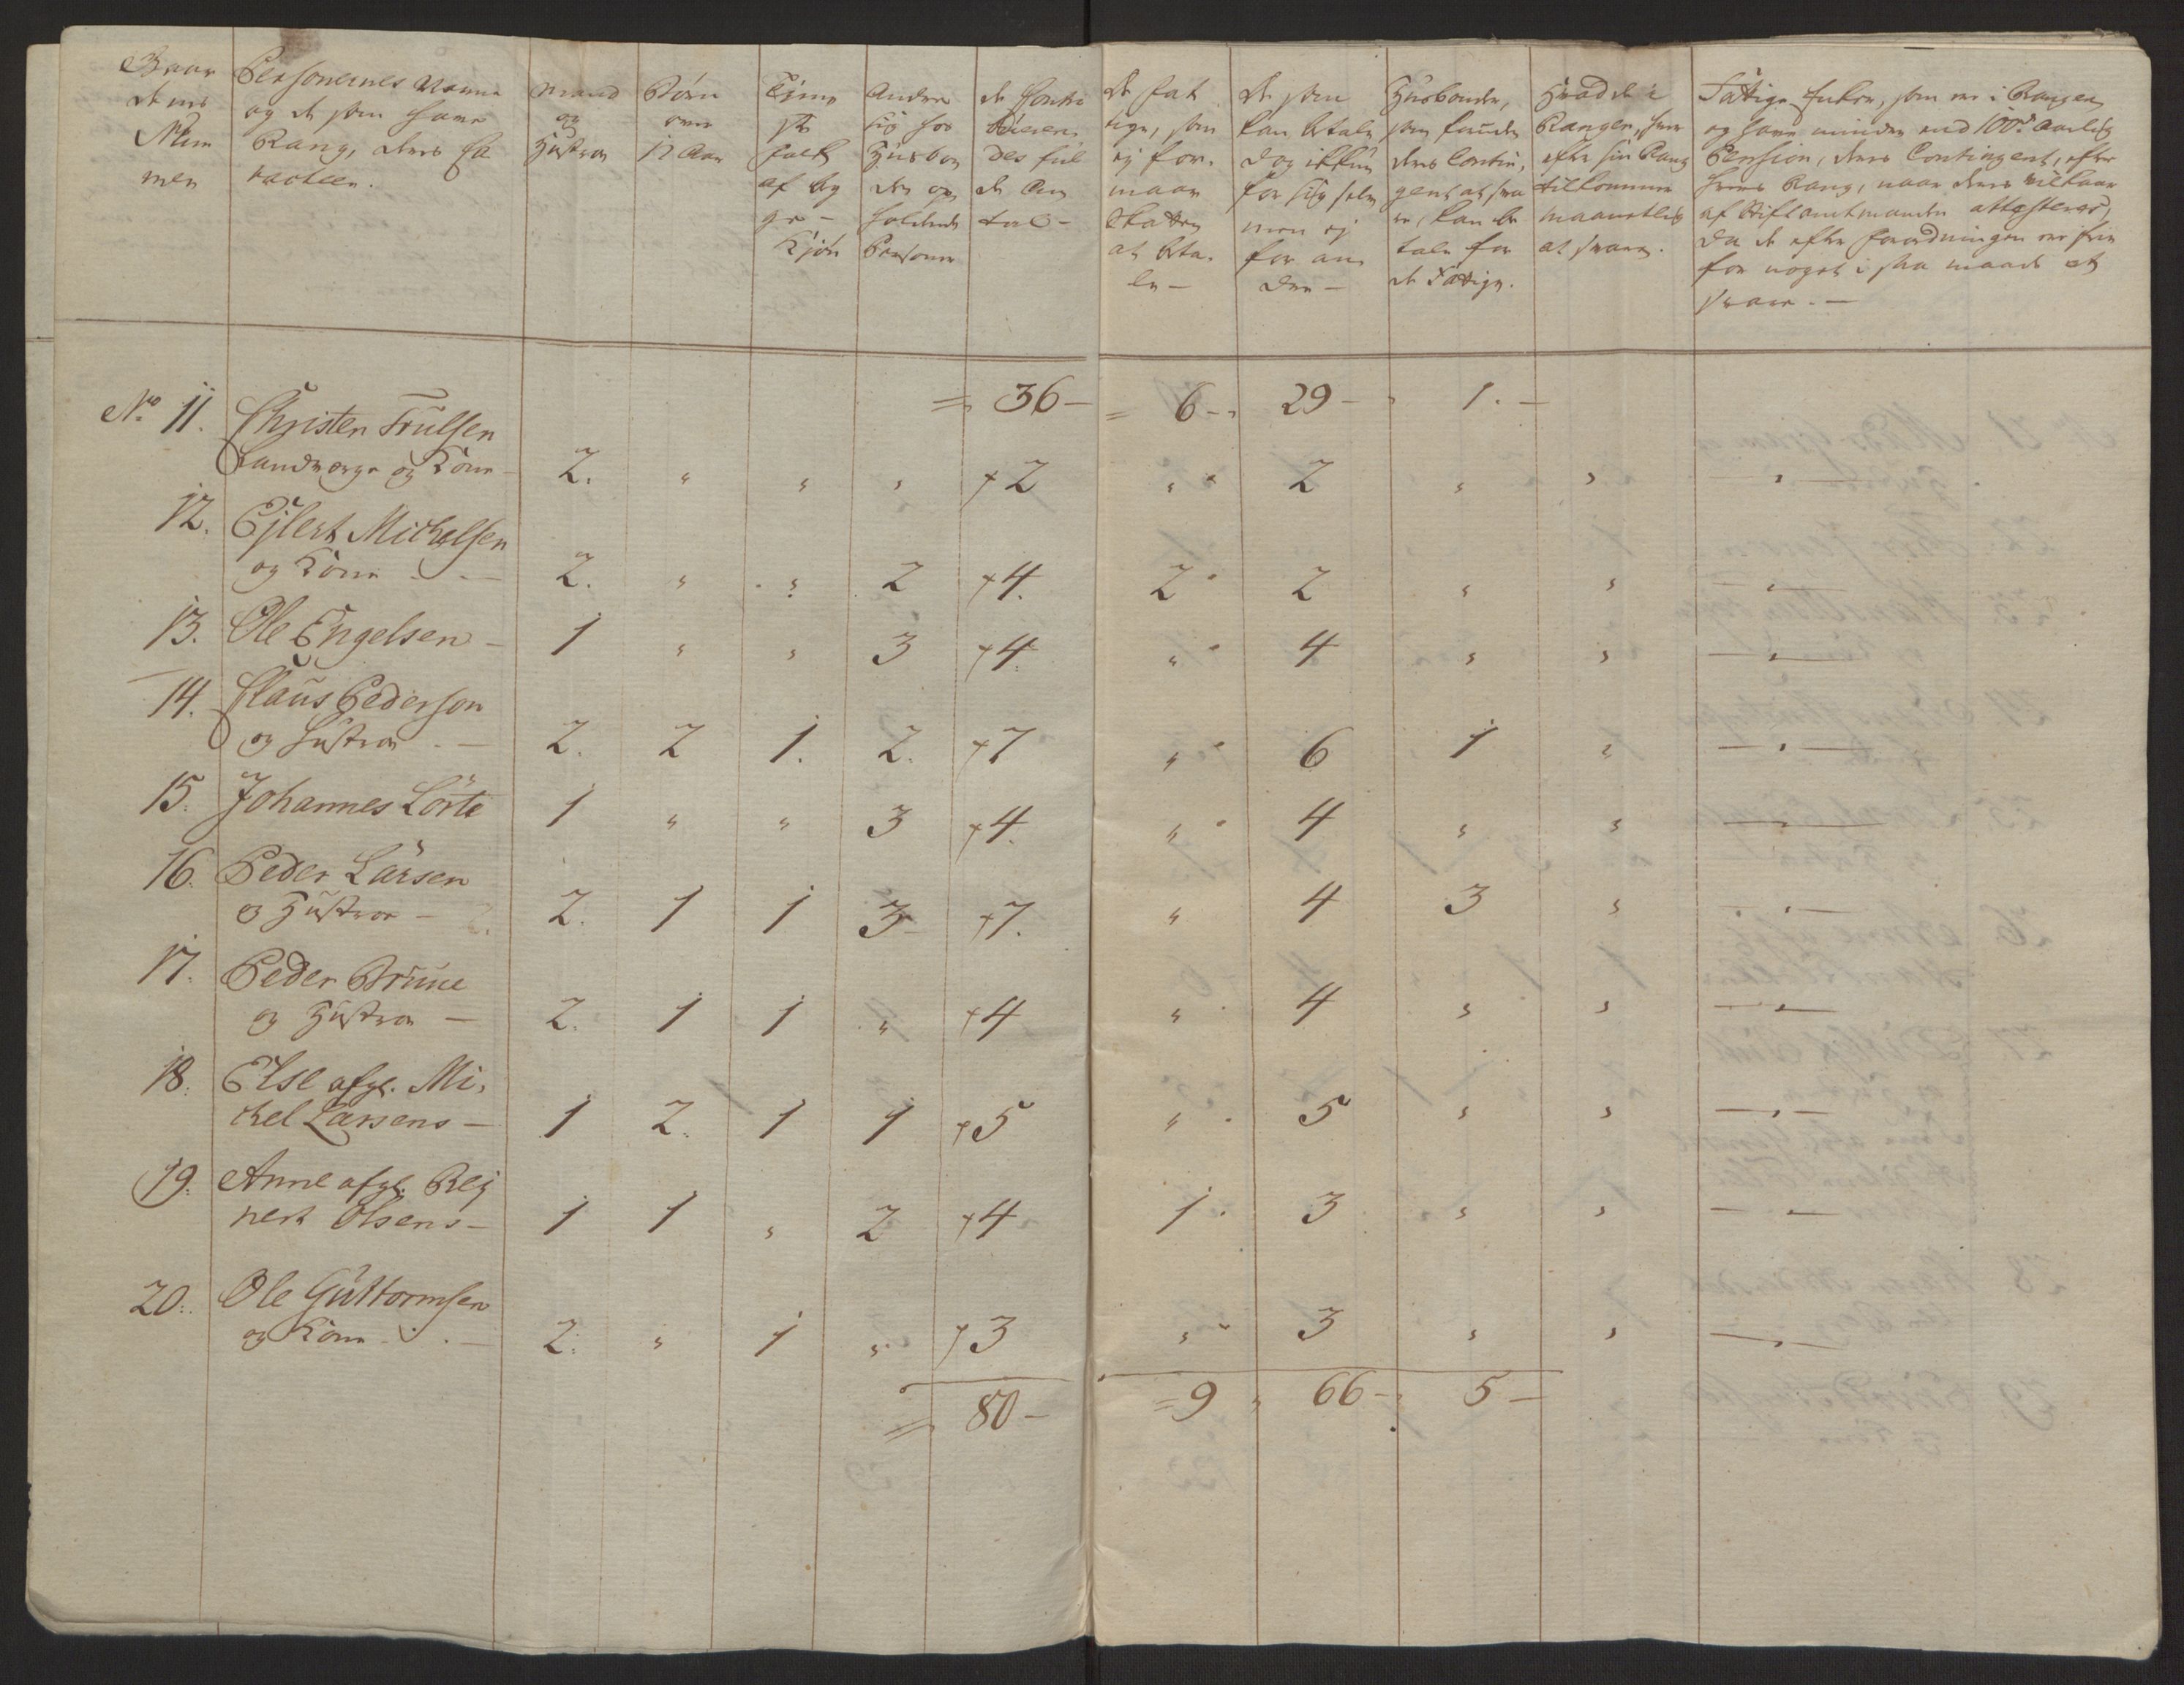 Gaar
dens
Num
mer
Personernes Navne
og de som have
Rang, deres Ca
racteer.
Mand
og
Hustroe
Børn
over
12 Aar
Tiene
ste
folk
af beg
ge -
Kjøn
Andre
sig hos
Husbon
den op
holdende
Personer
de Contri
bueren
des ful
de An
tal -
De fat
tige, som
ej for-
maae
Skatten
at beta-
le -
De som
kan betale
dog ikkun
for sig selv
men ej
for an
dre -
Husbonde,
som foruden
deres Contin,
gent at sva
re, kan be
tale for
de Fattige.
Hvad de i
Rangen, hver
efter sin Rang
tilkommer
maanetlig
at svare.
Fattige Enker, som ere i Rangen
og have mindre end 100rd aarlig
Pension, deres Contingent, efter
deres Rang, naar deres vilkaar
af Stiftamtmanden attesteres,
da de efter Forordningen ere frie
for noget i saa maade at
svare. -
= 36 - = 6 - 29 - 1. -
No 11. Christen Trulsen
Landværge og Kone - 2. " " " + 2 " 2 " " "
12. Ejlert Michelsen
og Kone - 2. " " 2 + 4. 2 2 " " "
13. Ole Engelsen - 1 " " 3 + 4. " 4 " " "
14. Claus Pederson
og Hustroe - 2. 2 1. 2. + 7 " 6 1 " "
15. Johannes Lörte 1 " " 3 + 4. " 4 " " "
16. Peder Larsen
og Hustroe - 2. 1 1 3 + 7. " 4 3 " "
17. Peder Brune
og Hustroe - 2. 1 1 " + 4 " 4 " " "
18. Else afgl. Mi,
chel Larsens - 1 2. 1 1 + 5 " 5 " " "
19. Anne afgl. Rej
nert Olsens - 1 1 " 2 + 4 1 3 " " "
20. Ole Guttormsen
og Kone - 2. " 1 " + 3 " 3 " " "
= 80 - = 9 " 66 - 5 -